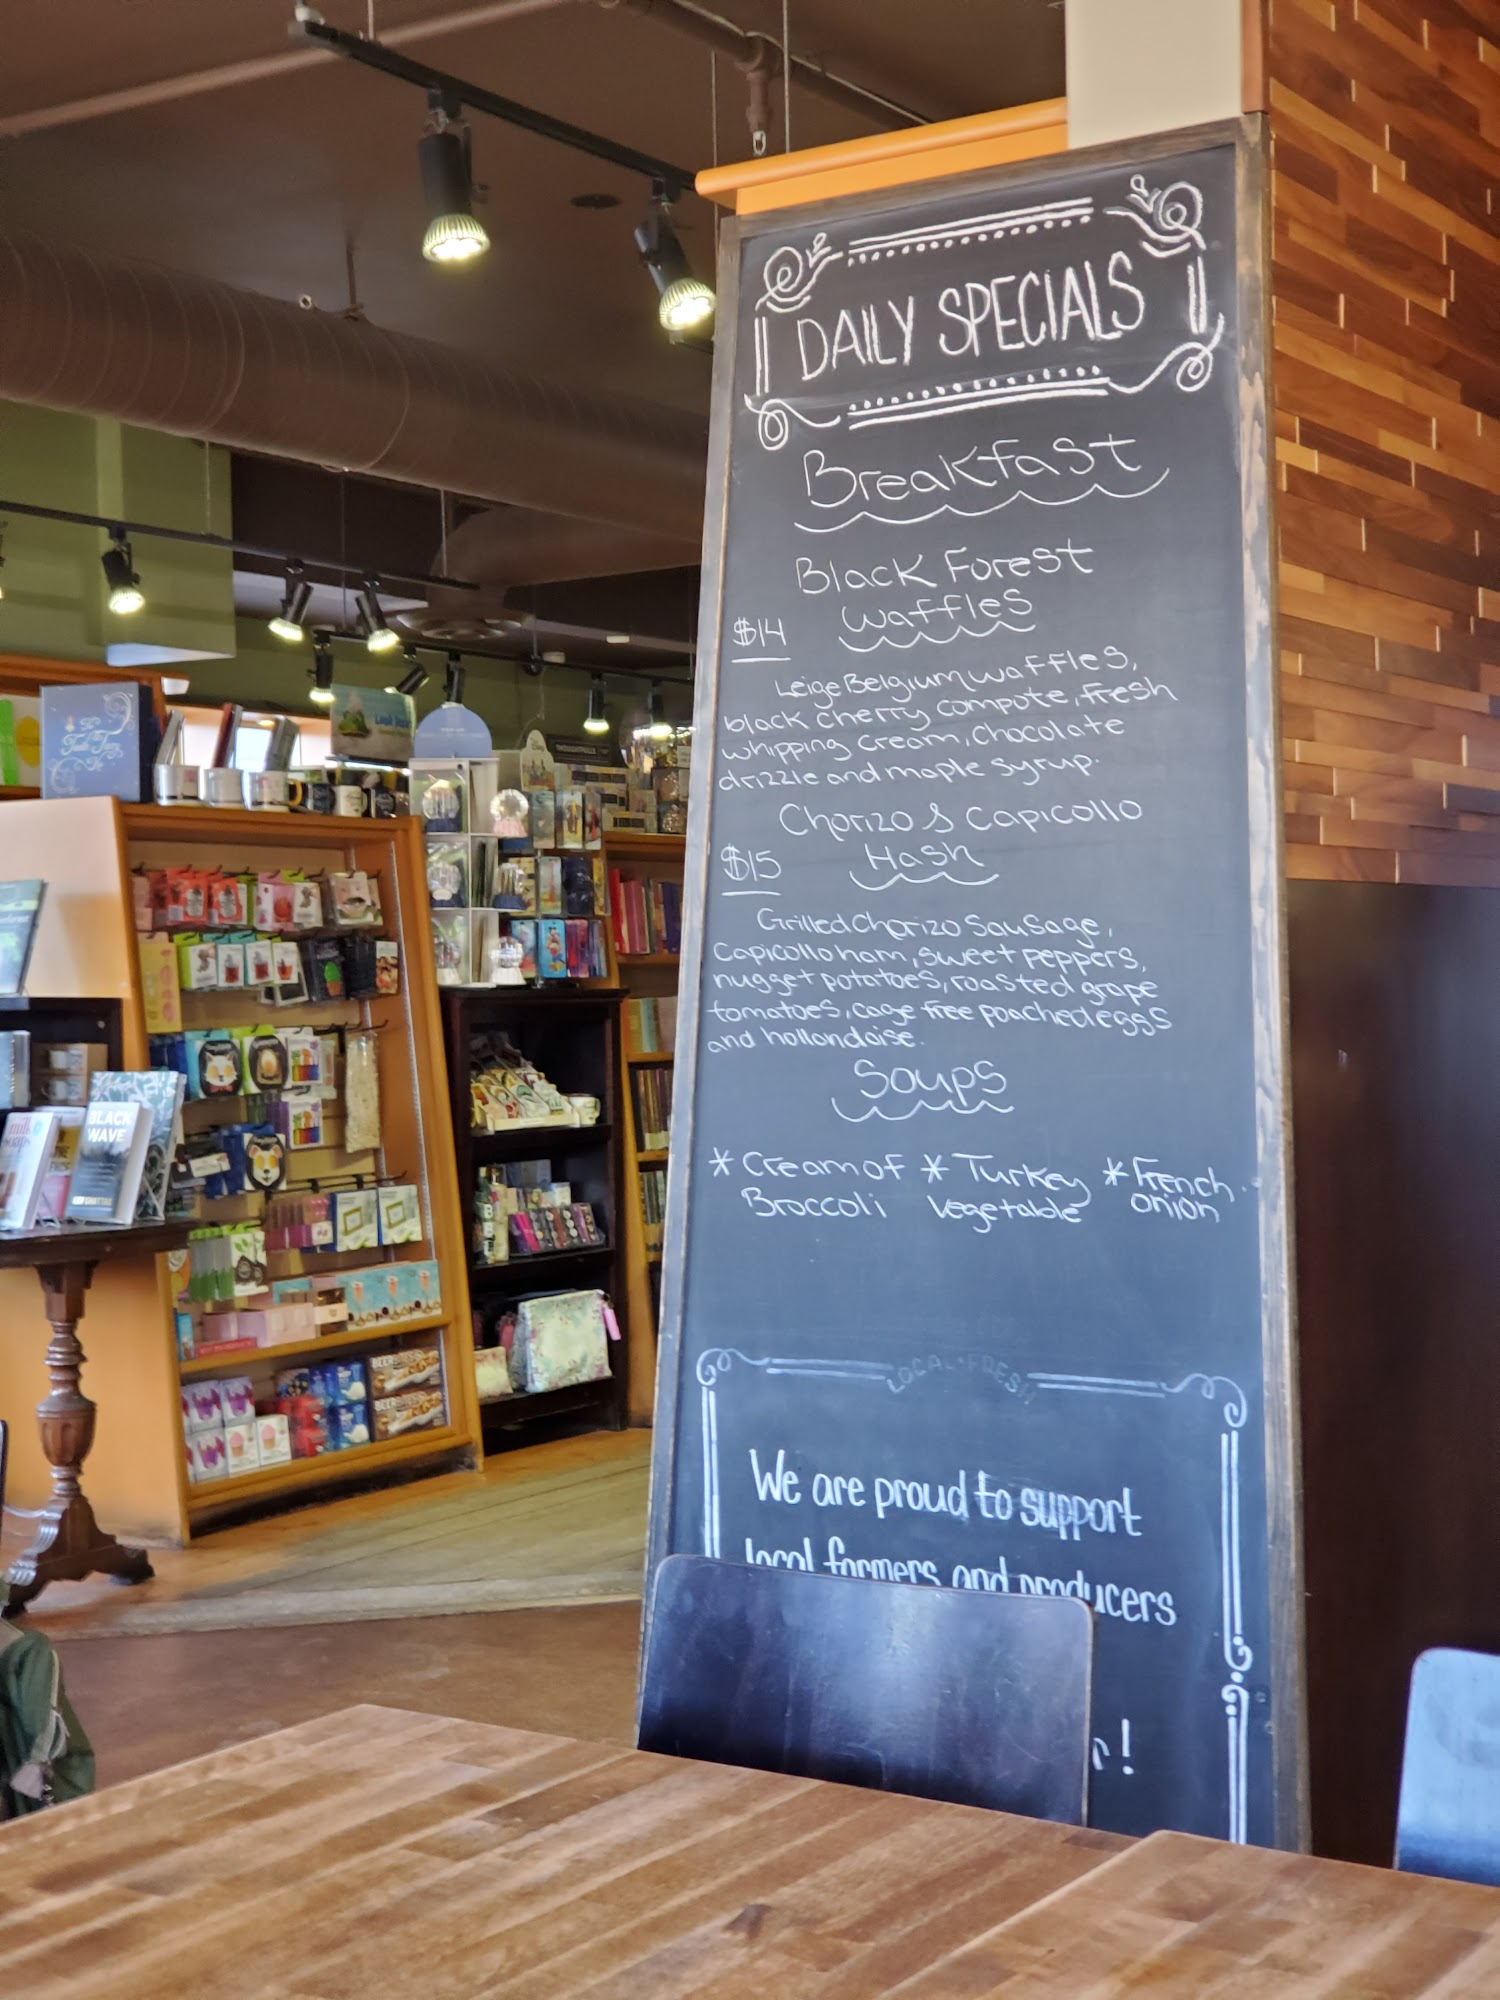 DAILY SPECIALS
Breakfast
Black Forest
Waffles
$14
Leige Belgium waffles,
black cherry compote, fresh
whipping cream, chocolate
drizzle and maple syrup.
Chorizo & Capicollo
Hash
$15
Grilled Chorizo Sausage,
Capicollo ham, sweet peppers,
nugget potatoes, roasted grape
tomatoes, cage free poached eggs
and hollandaise.
Soups
* Cream of
Broccoli
* Turkey
Vegetable
* French
onion
LOCAL FRESH
We are proud to support
local farmers and producers
r!
BLACK
WAVE